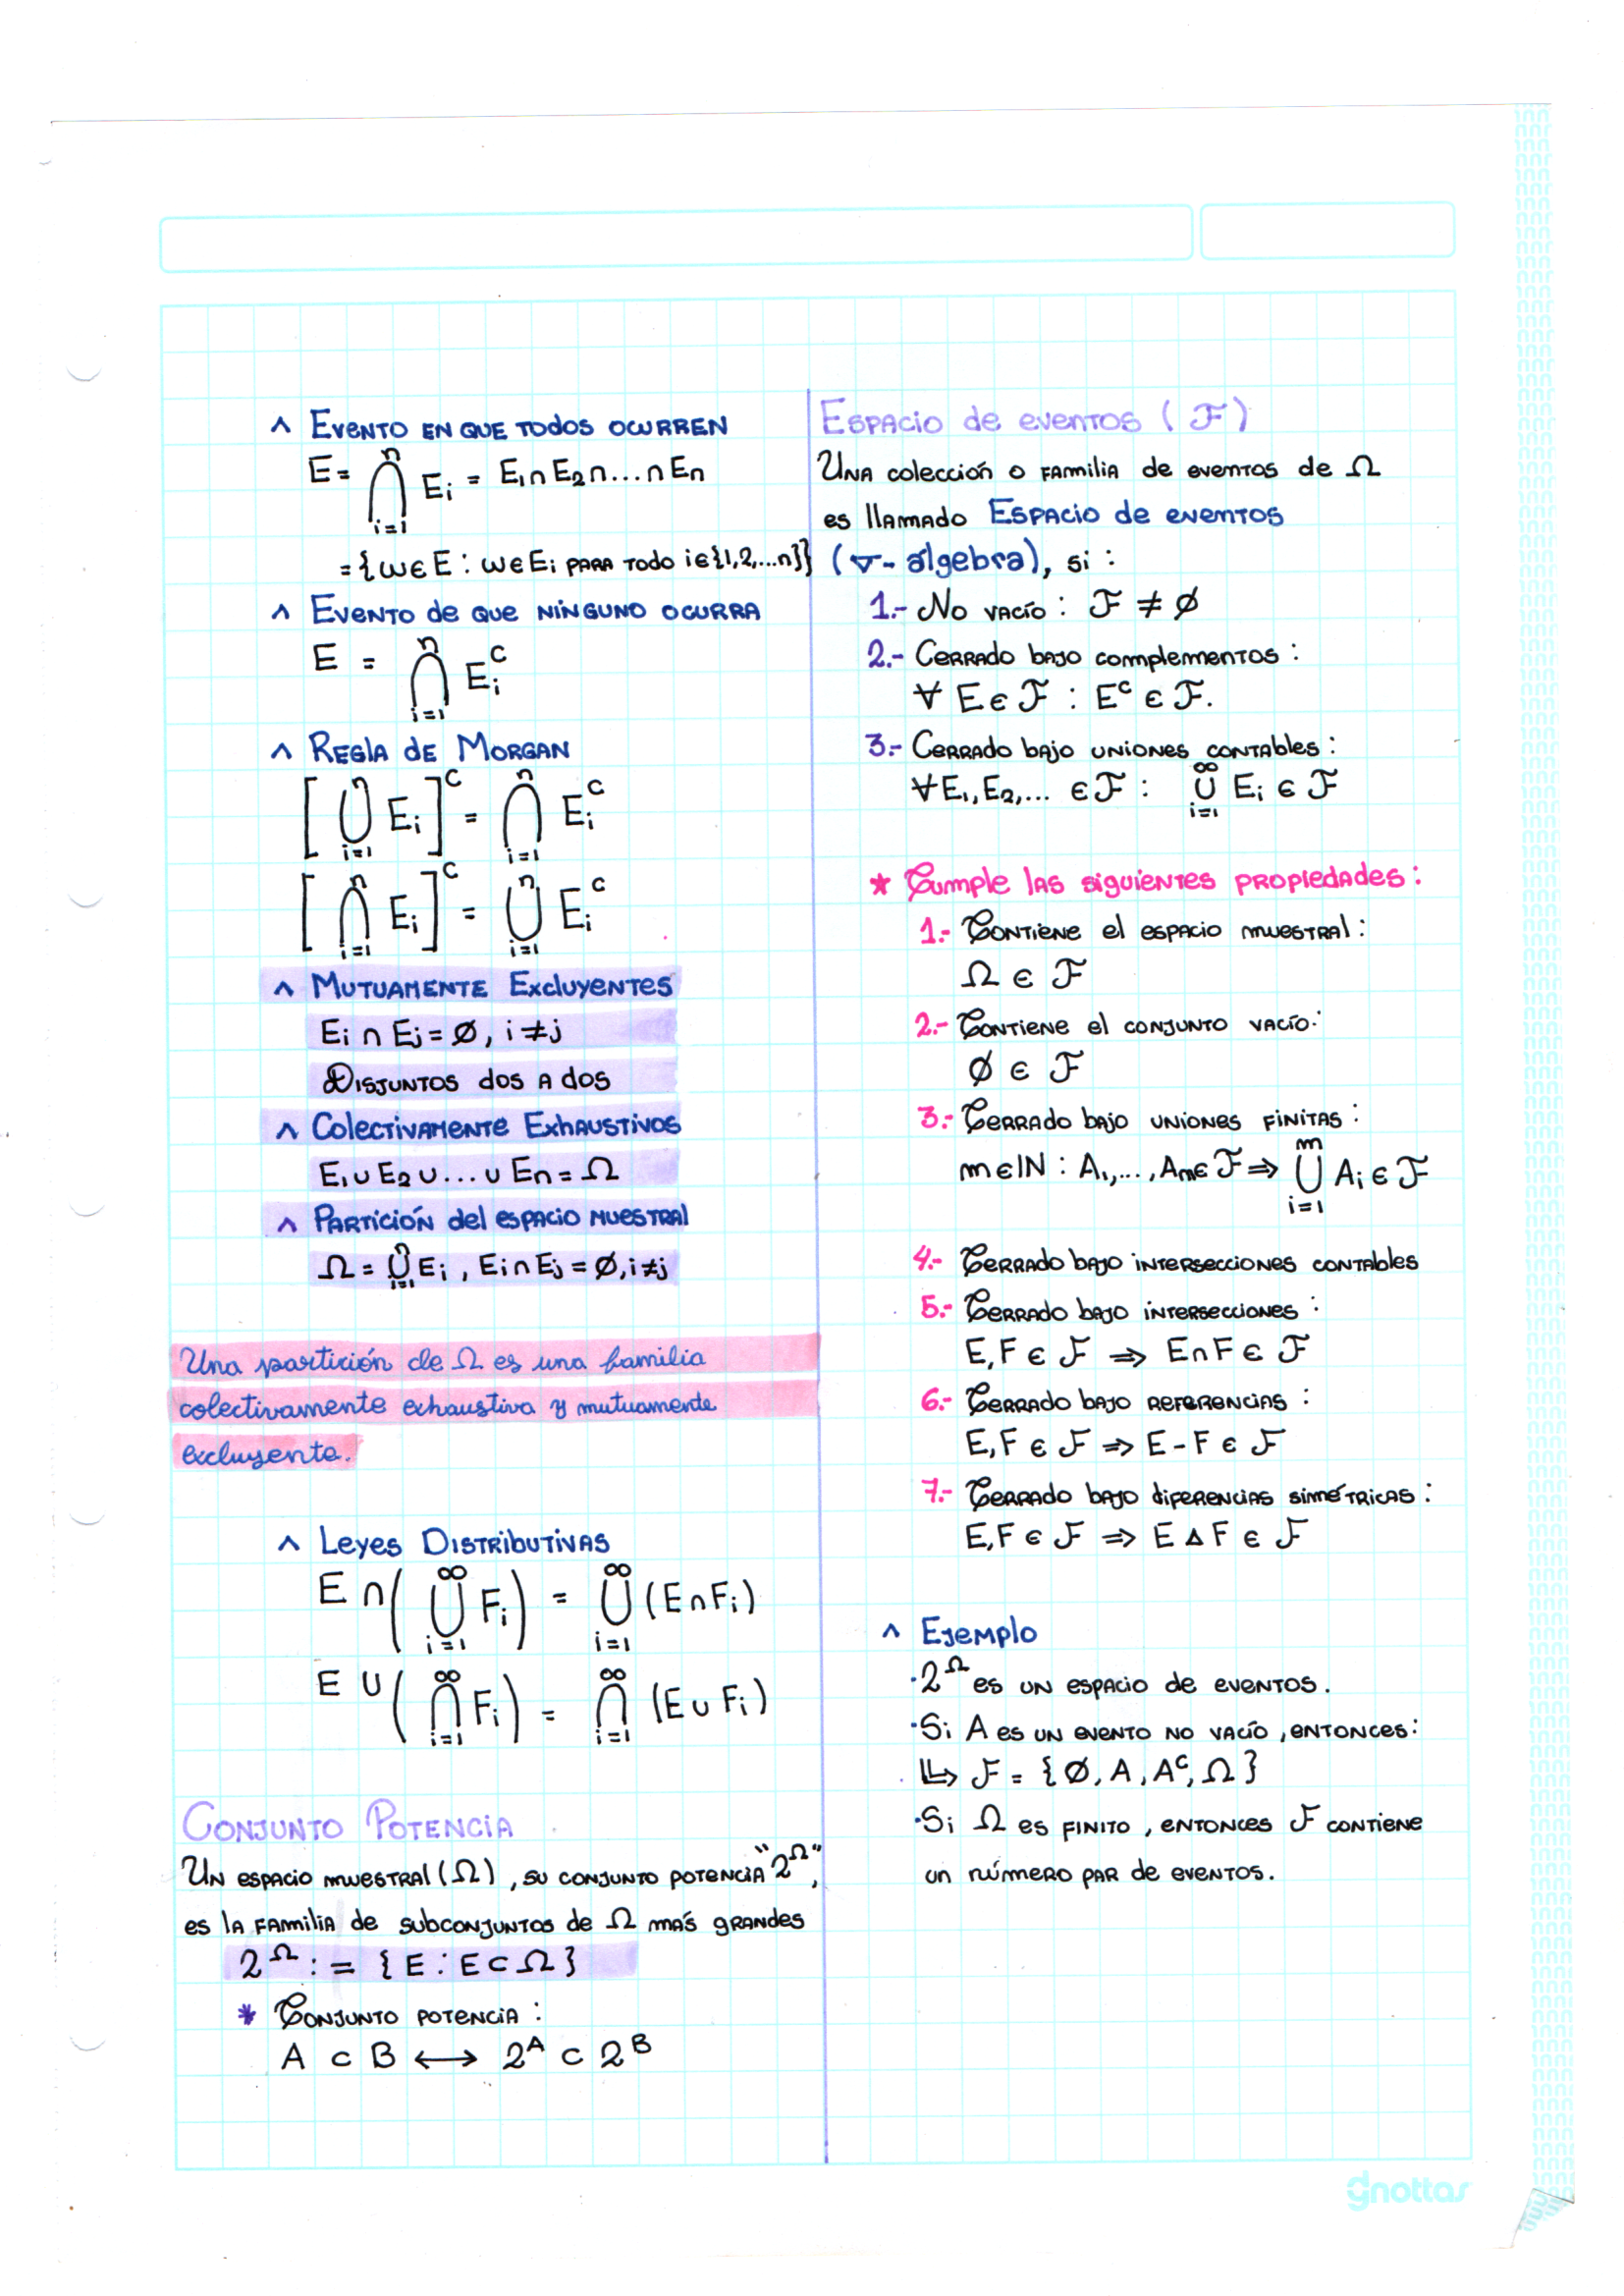 ^ Evento en que todos ocurren
E = ⋂_{i=1}^{n} E_i = E_1 ∩ E_2 ∩ ... ∩ E_n
= {ω ∈ E : ω ∈ E_i para todo i ∈ {1,2,...n}}
^ Evento de que ninguno ocurra
E = ⋂_{i=1}^{n} E_i^C
^ Regla de Morgan
[⋃_{i=1}^{n} E_i]^C = ⋂_{i=1}^{n} E_i^C
[⋂_{i=1}^{n} E_i]^C = ⋃_{i=1}^{n} E_i^C
^ Mutuamente Excluyentes
E_i ∩ E_j = Ø, i ≠ j
Disjuntos dos a dos
^ Colectivamente Exhaustivos
E_1 ∪ E_2 ∪ ... ∪ E_n = Ω
^ Partición del espacio muestral
Ω = ⋃_{i=1}^{n} E_i, E_i ∩ E_j = Ø, i ≠ j
Una partición de Ω es una familia
colectivamente exhaustiva y mutuamente
excluyente.
^ Leyes Distributivas
E ∩ (⋃_{i=1}^{∞} F_i) = ⋃_{i=1}^{∞} (E ∩ F_i)
E ∪ (⋂_{i=1}^{∞} F_i) = ⋂_{i=1}^{∞} (E ∪ F_i)
Conjunto Potencia
Un espacio muestral (Ω), su conjunto potencia "2^Ω",
es la familia de subconjuntos de Ω más grandes
2^Ω := {E : E ⊂ Ω}
* Conjunto potencia:
A ⊂ B ⟷ 2^A ⊂ 2^B
Espacio de eventos (ℱ)
Una colección o familia de eventos de Ω
es llamado Espacio de eventos
(σ- álgebra), si:
1.- No vacío: ℱ ≠ Ø
2.- Cerrado bajo complementos:
∀ E ∈ ℱ : E^c ∈ ℱ.
3.- Cerrado bajo uniones contables:
∀ E_1, E_2, ... ∈ ℱ : ⋃_{i=1}^{∞} E_i ∈ ℱ
* Cumple las siguientes propiedades:
1.- Contiene el espacio muestral:
Ω ∈ ℱ
2.- Contiene el conjunto vacío:
Ø ∈ ℱ
3.- Cerrado bajo uniones finitas:
m ∈ ℕ : A_1, ..., A_m ∈ ℱ ⇒ ⋃_{i=1}^{m} A_i ∈ ℱ
4.- Cerrado bajo intersecciones contables
5.- Cerrado bajo intersecciones:
E, F ∈ ℱ ⇒ E ∩ F ∈ ℱ
6.- Cerrado bajo referencias:
E, F ∈ ℱ ⇒ E - F ∈ ℱ
7.- Cerrado bajo diferencias simétricas:
E, F ∈ ℱ ⇒ E Δ F ∈ ℱ
^ Ejemplo
·2^Ω es un espacio de eventos.
·Si A es un evento no vacío, entonces:
↳ ℱ = {Ø, A, A^c, Ω}
·Si Ω es finito, entonces ℱ contiene
un número par de eventos.
gnottas